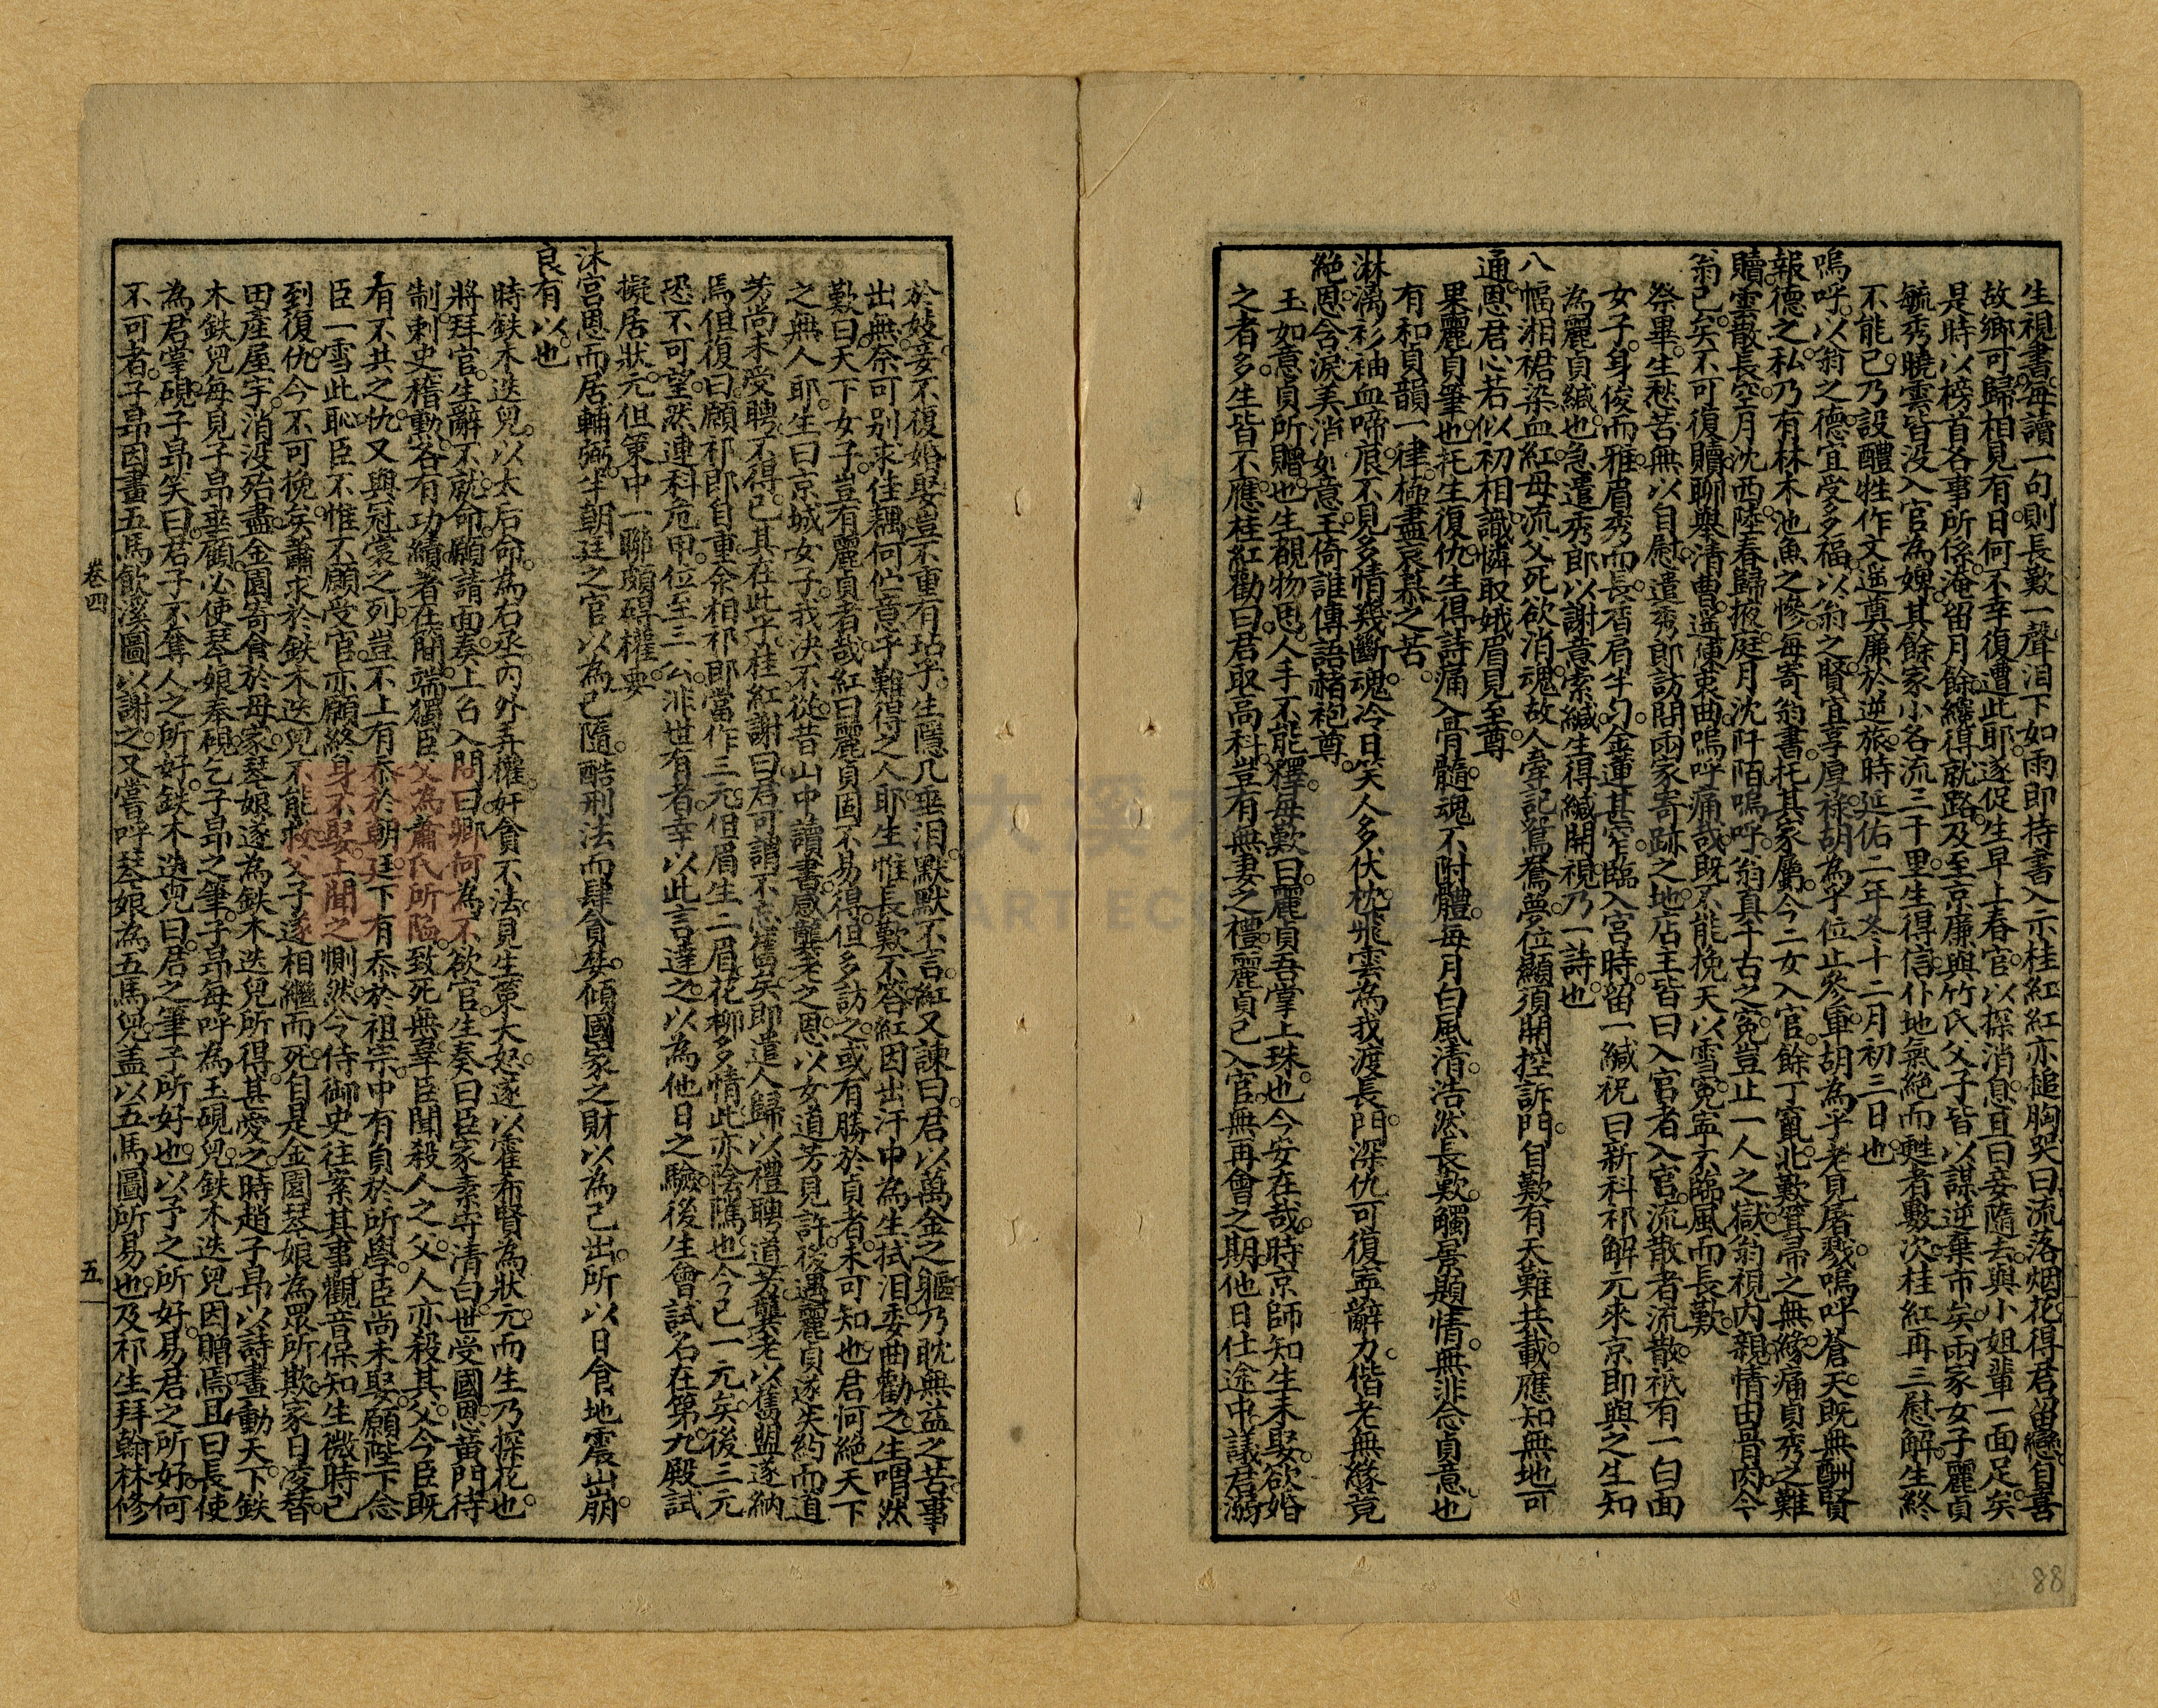 生視書每讀一句則長歎一聲泪下如雨即持書入示桂紅紅亦搥胸哭曰流落烟花得君留戀自喜
故鄉可歸相見有日何不幸復遭此耶遂促生早上春官以探消息直曰妾隨去與小姐輩一面足矣
是時以榜首各事所係淹留月餘纔得就路及至京廉與竹氏父子皆以謀逆棄市矣兩家女子麗貞
毓秀曉雲皆沒入官為婢其餘家小各流三千里生得信仆地氣絕而甦者數次桂紅再三慰解生終
不能已乃設醴牲作文遥奠廉於逆旅時延佑二年冬十二月初三日也
嗚呼以翁之德宜受多福以翁之賢宜享厚祿胡為乎位止參軍胡為乎老見屠戮嗚呼蒼天既無酬賢
報德之私乃有林木池魚之慘每寄翁書托其家屬今二女入官餘丁竄北歎箕帚之無緣痛貞秀之難
贖雲散長空月沈西陸春歸掖庭月沈阡陌嗚呼翁真千古之冤豈止一人之獄翁視内親情由骨肉今
翁已矣不可復贖聊舉清曹遥陳衷曲嗚呼痛哉既不能挽天以雪冤寧不臨風而長歎
祭畢生愁苦無以自慰遣秀郎訪問兩家寄跡之地店主皆曰入官者入官流散者流散祇有一白面
女子身俊而雅眉秀而長香肩半匀金蓮甚窄臨入宮時留一緘祝曰新科祁解元來京即與之生知
為麗貞緘也急遣秀郎以謝意索緘生得緘開視乃一詩也
八幅湘裙染血紅母流父死欲消魂故人牽記鴛鴦夢位顯須開控訴門自歎有天難共載應知無地可
通恩君心若似初相識憐取娥眉見至尊
果麗貞筆也托生復仇生得詩痛入骨髓魂不附體每月白風清浩然長歎觸景顯情無非念貞意也
有和貞韻一律極盡哀慕之苦
淋漓衫袖血啼痕不見多情幾斷魂冷日笑人多伏枕飛雲為我渡長門深仇可復寧辭力偕老無緣竟
絕恩含淚美消如意玉倚誰傳語赭袍尊
玉如意貞所贈也生覩物思人手不能釋每歎曰麗貞吾掌上珠也今安在哉時京師知生未娶欲婚
之者多生皆不應桂紅勸曰君取高科豈有無妻之禮麗貞已入官無再會之期他日仕途中議君溺
於妓妾不復婚娶豈不重有玷乎生隱几垂泪默默不言紅又諫曰君以萬金之軀乃耽無益之苦事
出無奈可別求佳耦何伫意乎難得之人耶生惟長歎不答紅因出汗巾為生拭泪委曲勸之生喟然
歎曰天下女子豈有麗貞者哉紅曰麗貞固不易得但多訪之或有勝於貞者未可知也君何絕天下
之無人耶生曰京城女子我決不從昔山中讀書感龔老之恩以女道芳見許後遇麗貞遂失約而道
芳尚未受聘不得已其在此乎桂紅謝曰君可謂不忘舊矣即遣人歸以禮聘道芳龔老以舊盟遂納
焉但復曰願祁郎自重余相祁郎當作三元但眉生二眉花柳多情此亦陰隲也今已一元矣後三元
恐不可望然連科危甲位至三公非世有者幸以此言達之以為他日之驗後生會試名在第九殿試
擬居狀元但策中一聯頗碍權要
沐宮恩而居輔弼半朝廷之官以為己隨酷刑法而肆貪婪傾國家之財以為己出所以日食地震山崩
良有以也
時鉄木迭兒以太后命為右丞丙外弄權奸貪不法見生策大怒遂以霍布賢為狀元而生乃探花也
將拜官生辭不就命願請面奏上召入問曰卿何為不欲官生奏曰臣家素守清白世受國恩黃門待
制刺史稽勳各有功績著在簡端獨臣父為蕭氏所陷致死無辜臣聞殺人之父人亦殺其父今臣既
有不共之仇又與冠裳之列豈不上有忝於朝廷下有忝於祖宗中有負於所學臣尚未娶願陛下念
臣一雪此恥臣不惟不願受官亦願終身不娶上聞之惻然令侍御史往案其事觀音保知生微時已
到復仇今不可挽矣蕭求於鉄木迭兒不能救父子遂相繼而死自是金園琴娘為眾所欺家日凌替
田產屋宇消沒殆盡金園寄食於母家琴娘遂為鉄木迭兒所得甚愛之時趙子昂以詩畫動天下鉄
木鉄兒每見子昂垂顧必使琴娘奉硯乞子昂之筆子昂每呼為玉硯兒鉄木迭兒因贈焉且曰長使
為君掌硯子昂笑曰君子不奪人之所好鉄木迭兒曰君之筆予所好也以予之所好易君之所好何
不可者子昂因畫五馬飲溪圖以謝之又嘗呼琴娘為五馬兒蓋以五馬圖所易也及祁生拜翰林修
卷四
五
88